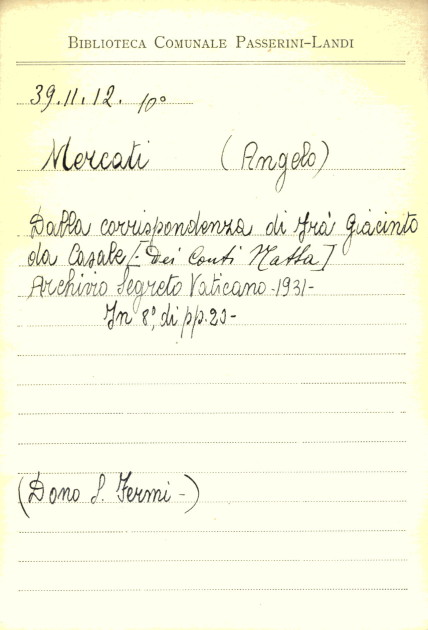 BIBLIOTECA COMUNALE PASSERINI-LANDI
39.11.12. 10°
Mercati (Angelo)
Dalla corrispondenza di Frà Giacinto
da Casale [- Dei Conti Natta]
Archivio Segreto Vaticano - 1931 -
In 8°, di pp. 20 -
(Dono S. Fermi -)